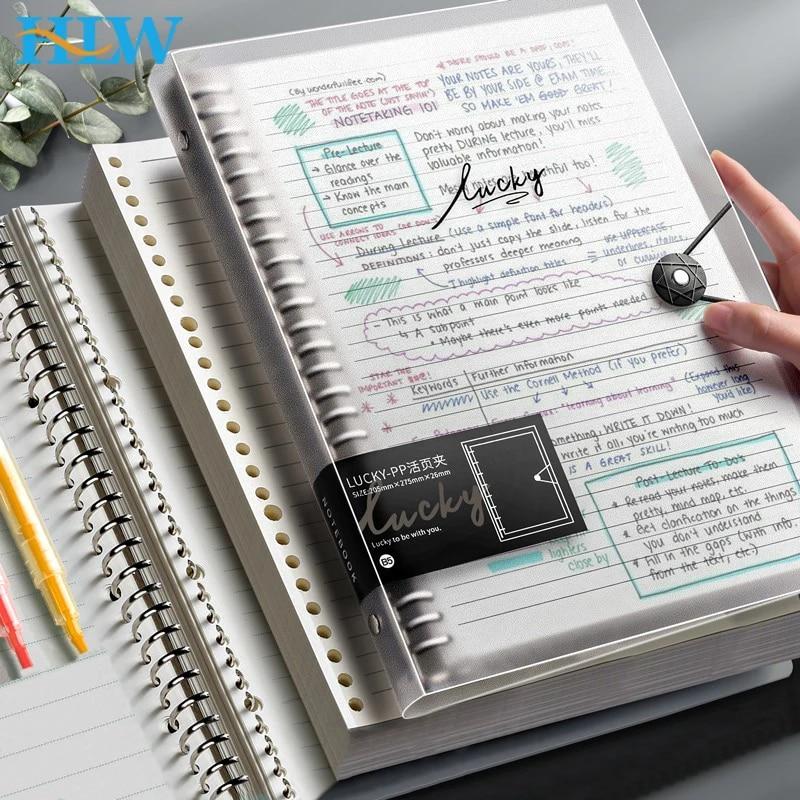 HLW
(by wonderfulifee.com)
THE TITLE GOES AT THE TOP
OF THE NOTE (JUST SAYIN')
NOTETAKING 101
* THERE SHOULD BE A DATE, TOO!
YOUR NOTES ARE YOURS, THEY'LL
BE BY YOUR SIDE @ EXAM TIME
SO MAKE 'EM GOOD GREAT!
Don't worry about making your notes
pretty DURING lecture, you'll miss
valuable information!
Pre-Lecture
→ Glance over the
readings
→ Know the main
concepts
too!
lucky
USE ARROWS TO
CONNECT IDEAS (OR DON'T)
During Lecture (use a simple font for headers)
DEFINITIONS: don't just copy the slide, listen for the
professors deeper meaning
I highlight definition titles
= use UPPERCASE,
underlines, italics,
or
This is what a main point looks like
↳ A subpoint
* Maybe there's even more points needed
STAR THE
IMPORTANT
Keywords
Further Information
Use the Cornell Method (if you prefer)
"learning about learning"
(Expand this
however long
you'd like)
WRITE IT DOWN!
write it all, you're writing too much
IS A GREAT SKILL!
Post Lecture To Do's
* Reread your notes, make them
pretty, mind map, etc.
* Get clarification on the things
you don't understand
* Fill in the gaps (with info.
from the text, etc.)
close by
LUCKY-PP活页夹
SIZE:205mm×275mm×26mm
lucky
Lucky to be with you.
B5
NOTEBOOK